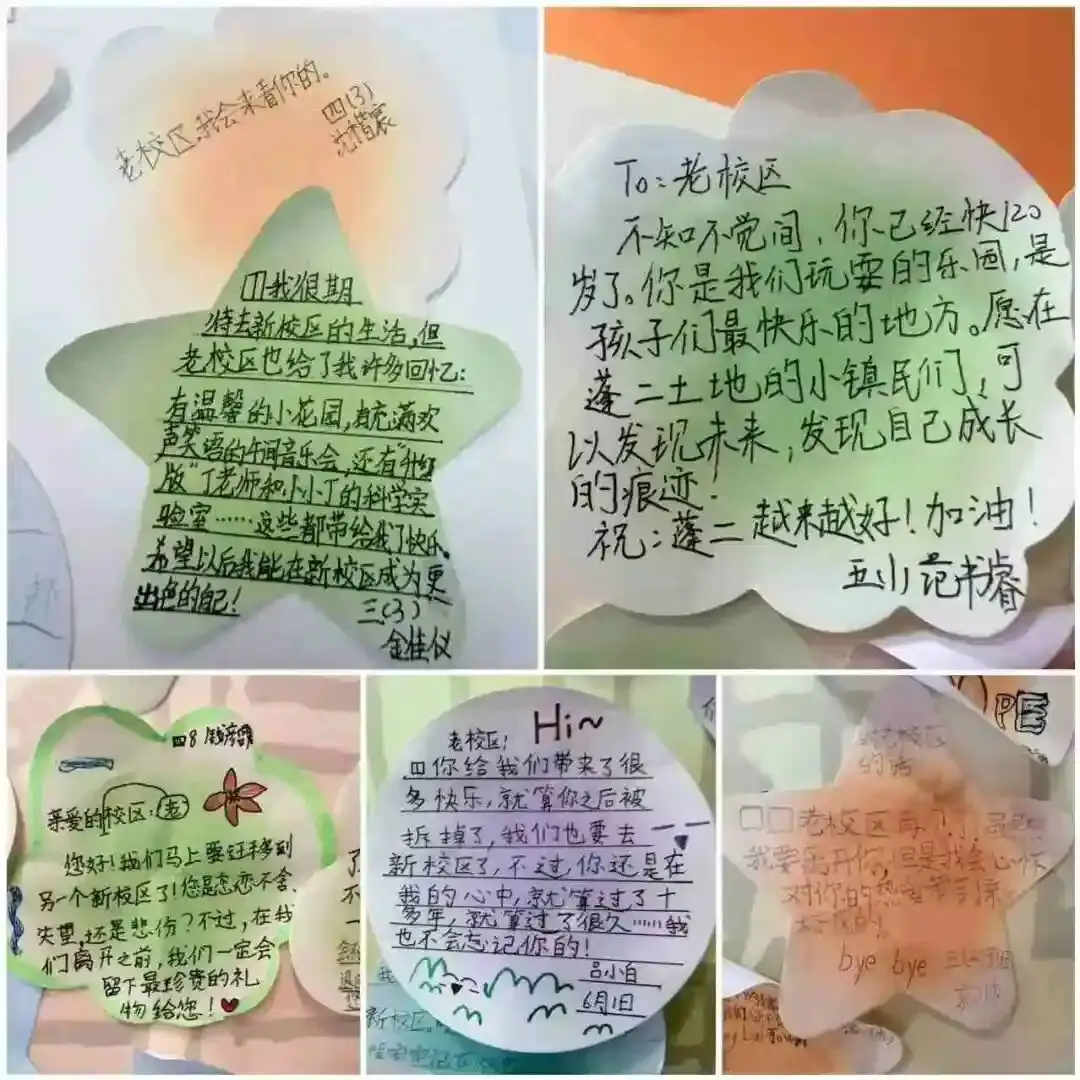 老校区,我会来看你的。
四(3)
我狠期
待去新校区的生活,但
老校区也给了我许多回忆:
有温馨的小花园,有充满欢
声笑语的午间音乐会,还有“升级
版”丁老师和小小丁的科学实
验室……这些都带给我了快乐。
希望以后我能在新校区成为更
出色的自己!
三(3)
金佳仪
To:老校区
不知不觉间,你已经快120
岁了。你是我们玩耍的乐园,是
孩子们最快乐的地方。愿在
蓬二土地的小镇民们,可
以发现未来,发现自己成长
的痕迹!
祝:蓬二越来越好!加油!
五(1)范书睿
四8
亲爱的校区:老
您好!我们马上要迁移到
另一个新校区了!您是恋恋不舍、
失望,还是悲伤?不过,在我
们离开之前,我们一定会
留下最珍贵的礼
物给您!
Hi~
老校区:
你给我们带来了很
多快乐,就算你之后被
拆掉了,我们也要去
新校区了,不过,你还是在
我的心中,就算过了十
多年,就算过了很久……我
也不会忘记你的!
吕小白
6月1日
PE
老校区
的话
老校区
我要离开你,但是我会心怀
对你的热
bye bye
新校区